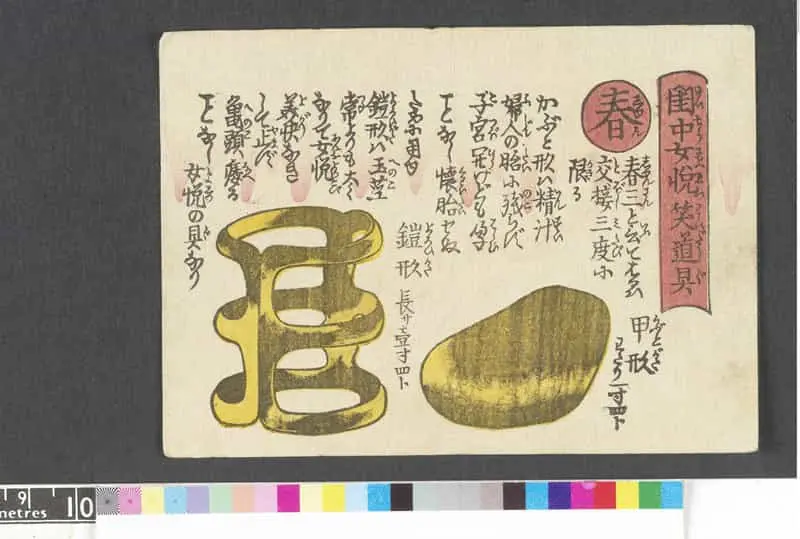 閨中女悦笑道具
春
春三と云ことは
交接三度に
限る
甲形
わたり一寸四ト
かぶと形ハ精汁
婦人の胎に残らず
子宮
ことなし懐胎せぬ
ために用ゆ
鎧形ハ玉茎
常よりも太く
なりて女悦
して止んで
亀頭
ことなし
女悦の具なり
鎧形
長サ壹寸四ト
9
10
metres